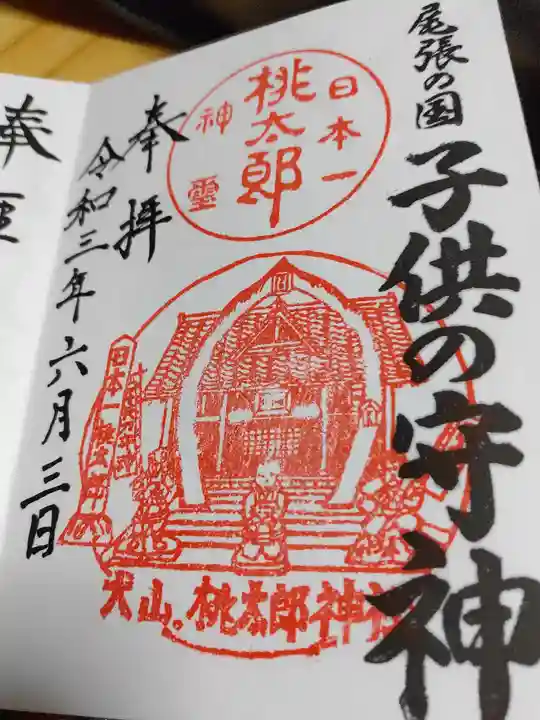 尾張の国
子供の守神
日本一
桃太郎
神霊
奉拝
令和三年六月三日
犬山。桃太郎神社
日本一桃太郎
奉